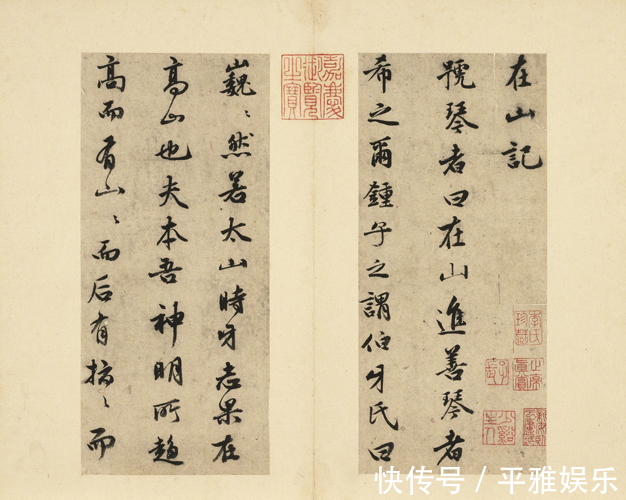 在山記
號琴者曰在山進善琴者
希之爾鍾子之謂伯牙氏曰
嘉慶御覽之寶
巍〻然若太山時牙志果在
高山也夫本吾神明所趨
高而有山〻而后有〻而
快传号 / 平雅娱乐